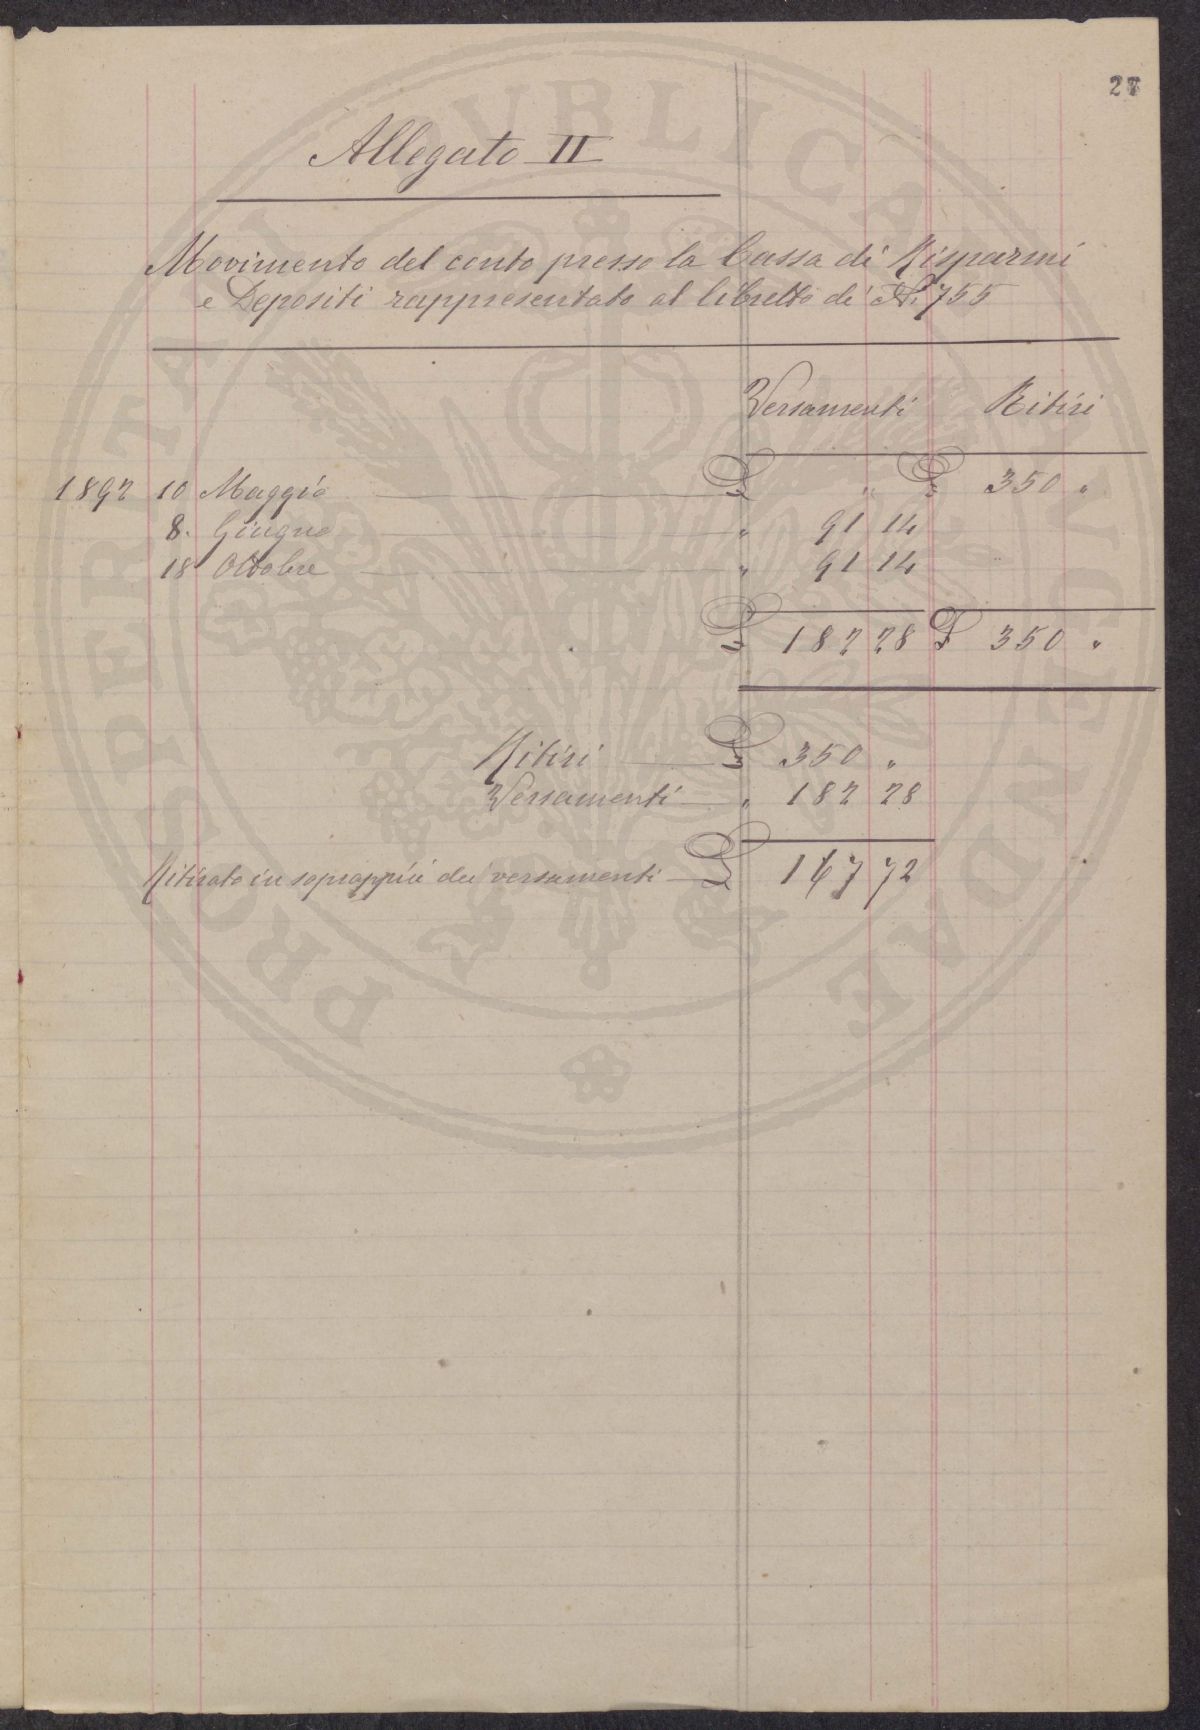 27
Allegato II
Movimento del conto presso la Cassa di Risparmi
e Depositi rappresentato al libretto di N. 755
Versamenti Ritiri
1892 10 Maggio £ " £ 350 "
8. Giugno " 91 14
18 Ottobre " 91 14
£ 182 28 £ 350 "
Ritiri £ 350 "
Versamenti " 182 28
Ritirato in soprappiù dei versamenti £ 167 72
PROSPERITATI PVBLICAE AVGENDAE